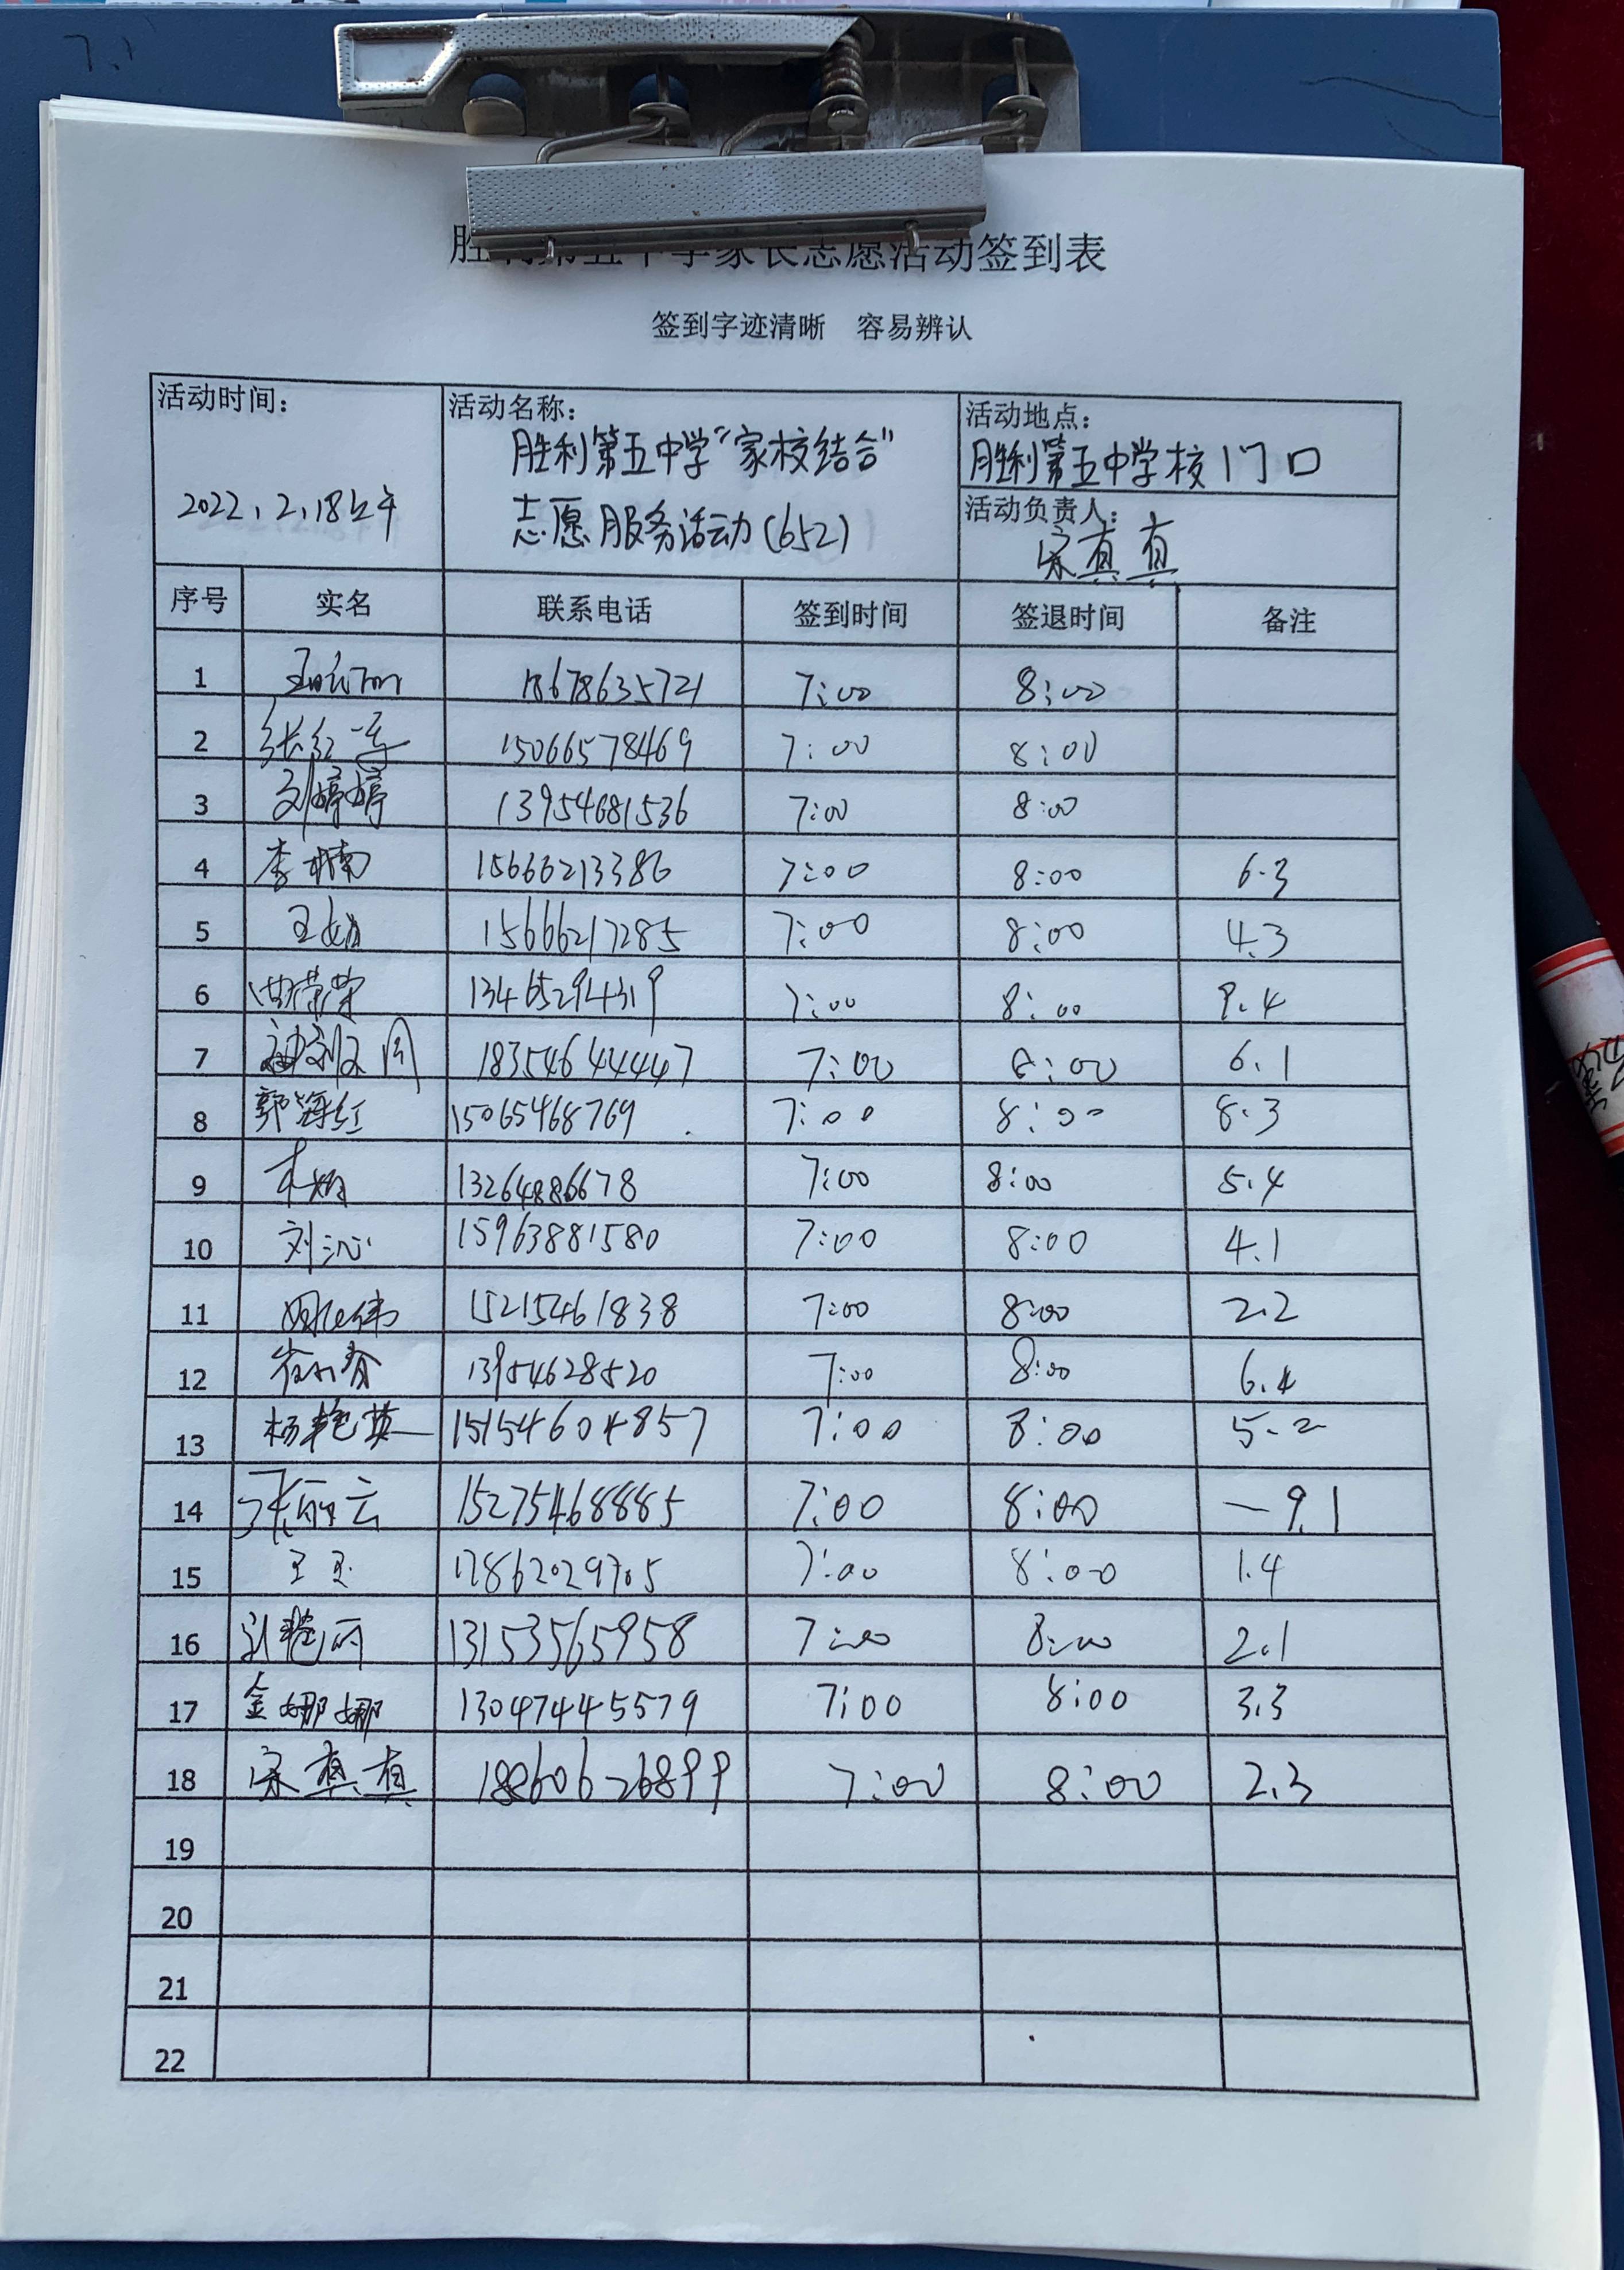 胜利第五中学家长志愿活动签到表
签到字迹清晰 容易辨认
活动时间: 2022.2.18上午
活动名称: 胜利第五中学“家校结合”
志愿服务活动(652)
活动地点:
胜利第五中学校门口
活动负责人:
宋真真
序号 实名 联系电话 签到时间 签退时间 备注
1 18678635721 7:00 8:00
2 张红 15066578469 7:00 8:00
3 刘婷婷 13954681536 7:00 8:00
4 李楠 15666213386 7:00 8:00 6.3
5 王 15666217285 7:00 8:00 4.3
6 13465294319 7:00 8:00 9.4
7 18354644447 7:00 8:00 6.1
8 郭海红 15065468769 7:00 8:00 8.3
9 13264886678 7:00 8:00 5.4
10 刘沁 15963881580 7:00 8:00 4.1
11 15215461838 7:00 8:00 2.2
12 13954628520 7:00 8:00 6.4
13 杨艳英 15154604857 7:00 8:00 5.2
14 张丽云 15275468885 7:00 8:00 一 9.1
15 王玉 17862029705 7:00 8:00 1.4
16 刘艳丽 13153565958 7:00 8:00 2.1
17 金娜娜 13047445579 7:00 8:00 3.3
18 宋真真 18860626899 7:00 8:00 2.3
19
20
21
22
7.1